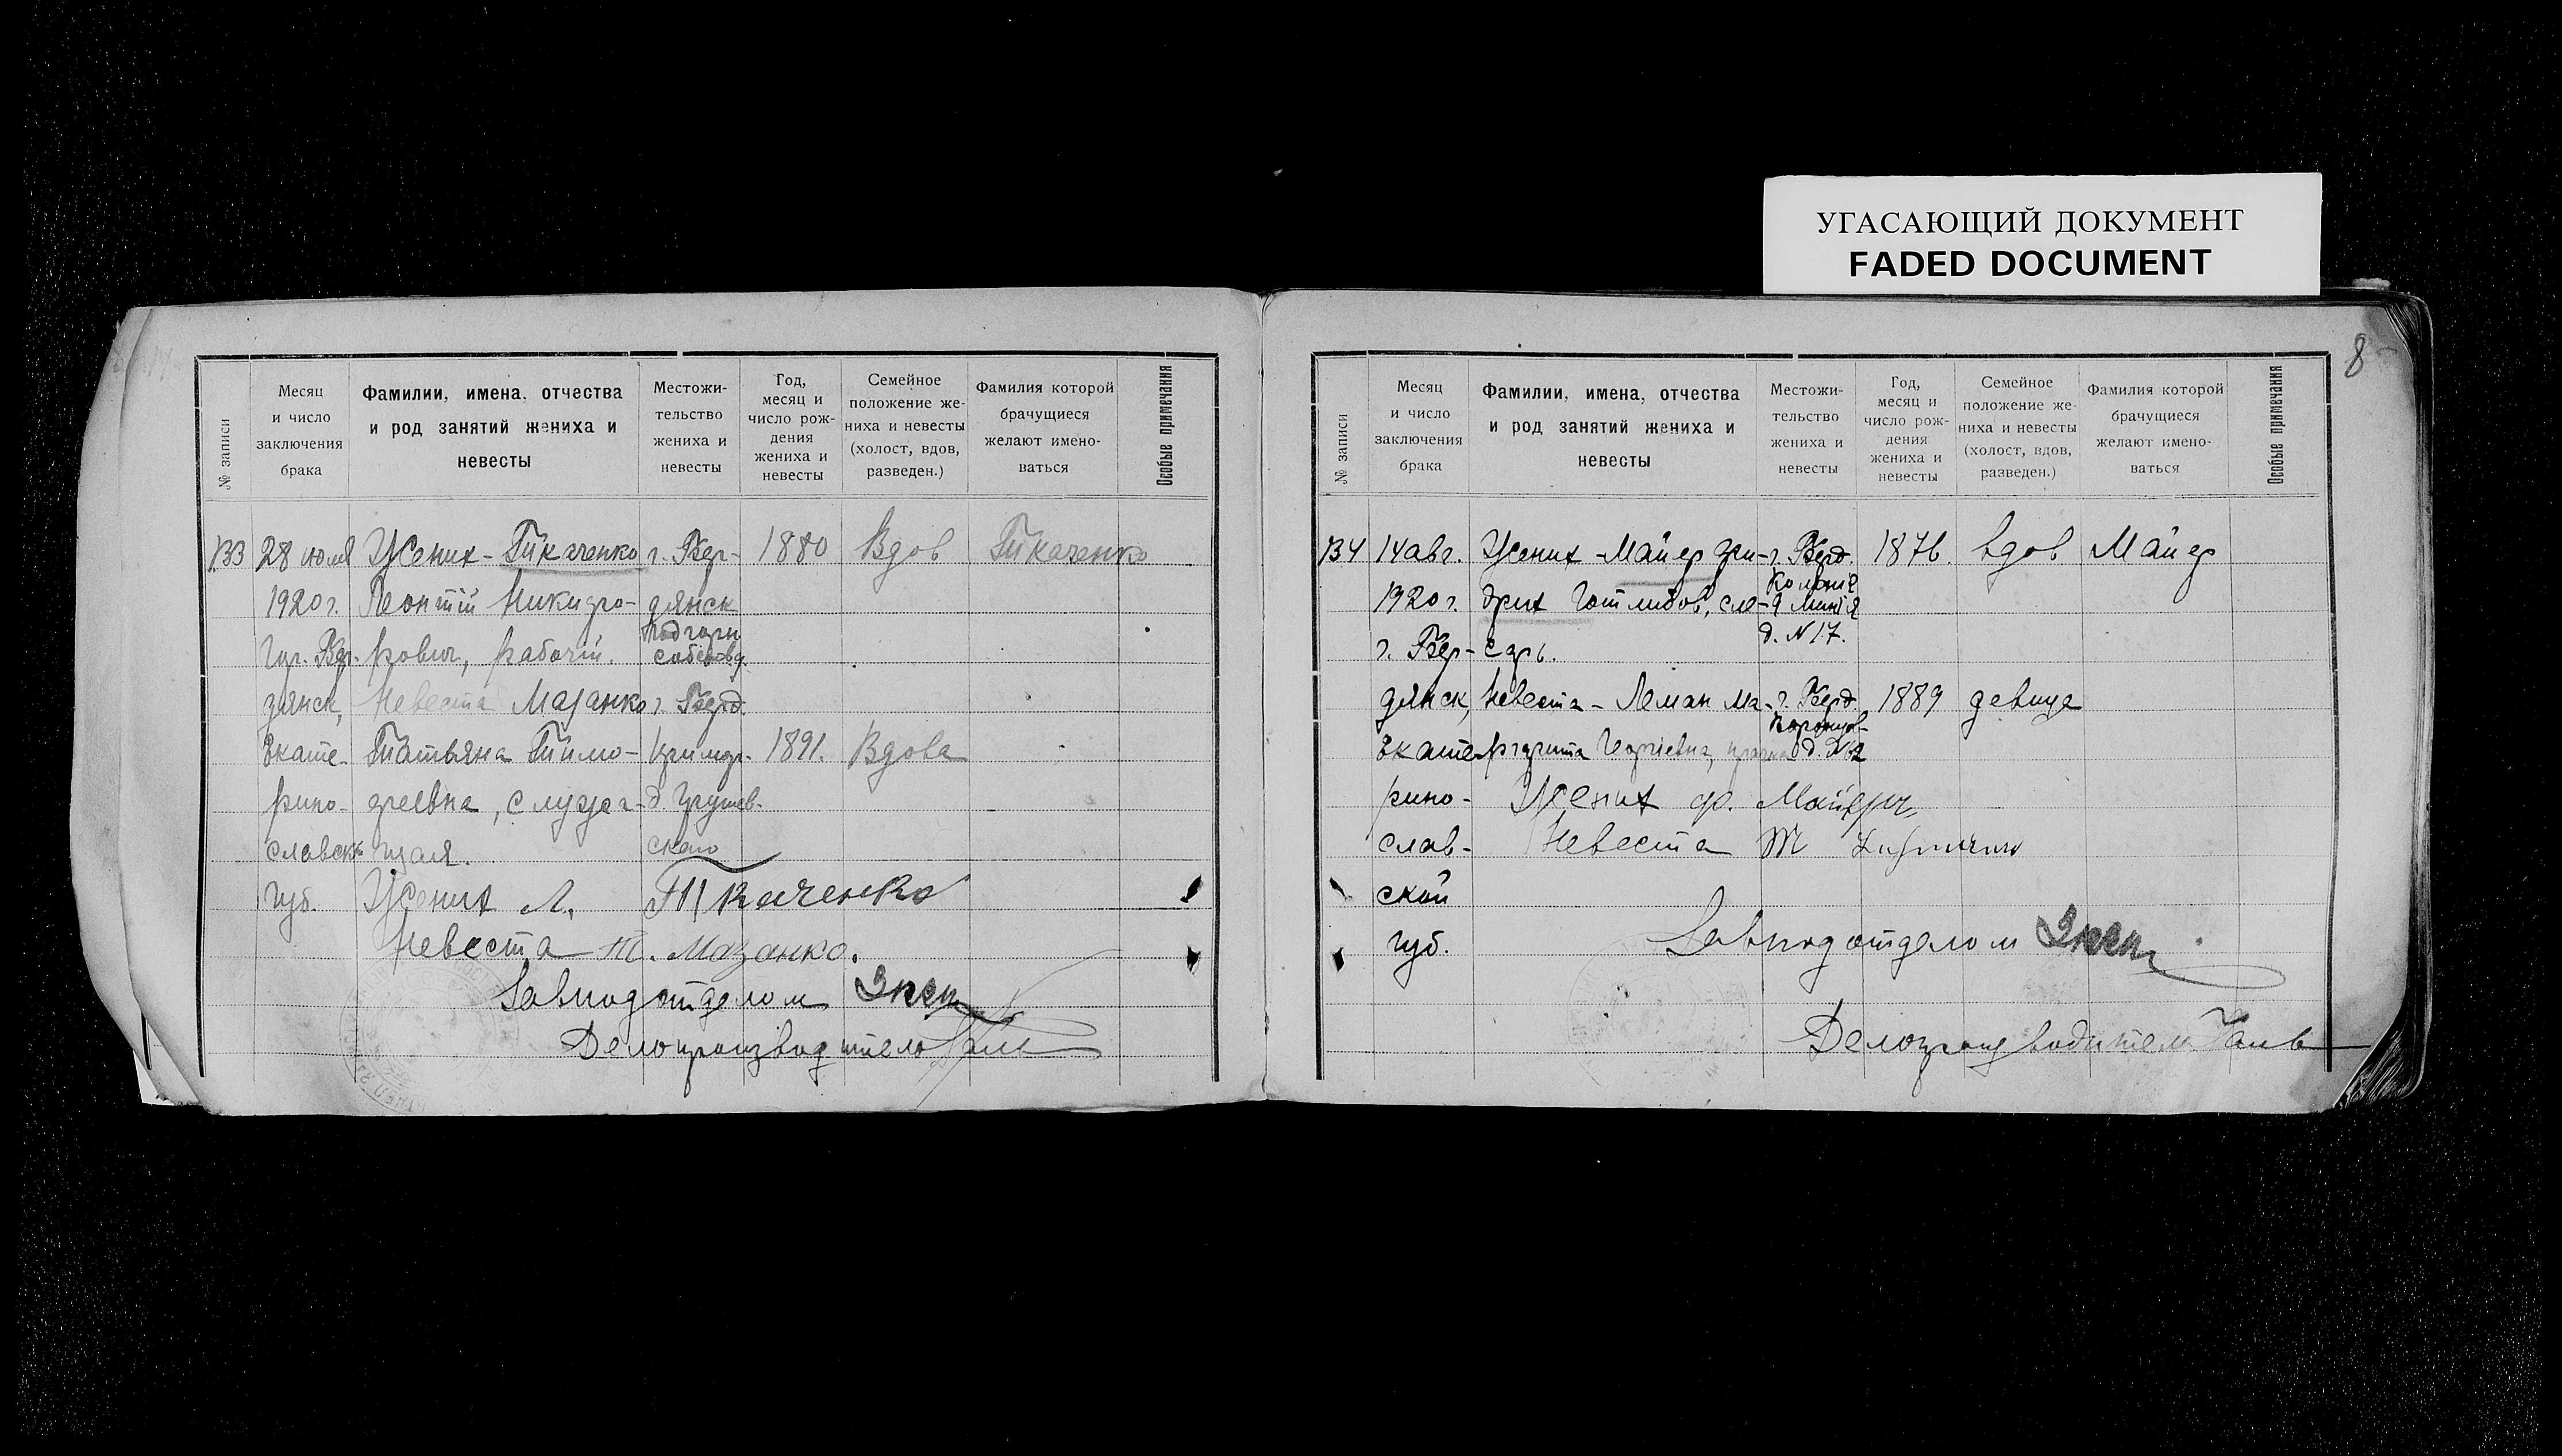 УГАСАЮЩИЙ ДОКУМЕНТ
FADED DOCUMENT
№ записи
Месяц
и число
заключения
брака
Фамилии, имена, отчества
и род занятий жениха и
невесты
Местожи-
тельство
жениха и
невесты
Год,
месяц и
число рож-
дения
жениха и
невесты
Семейное
положение же-
ниха и невесты
(холост, вдов,
разведен.)
Фамилия которой
брачущиеся
желают имено-
ваться
Особые примечания
133
28 июля
1920 г.
дянск,
Екате-
рино-
славск.
губ.
Жених - Ткаченко
Леонтій Никифо-
рович, рабочій.
Невеста Мазанко
Татьяна Тимо-
феевна, служа-
щая.
г. Бер-
дянск
г. Берд.
1880
1891.
Вдов
Вдова
Ткаченко
Жених Л. Ткаченко
Невеста Т. Мазанко.
Завподотделом
Делопроизводитель
8
№ записи
Месяц
и число
заключения
брака
Фамилии, имена, отчества
и род занятий жениха и
невесты
Местожи-
тельство
жениха и
невесты
Год,
месяц и
число рож-
дения
жениха и
невесты
Семейное
положение же-
ниха и невесты
(холост, вдов,
разведен.)
Фамилия которой
брачущиеся
желают имено-
ваться
Особые примечания
134
14 авг.
1920 г.
г. Бер-
дянск,
Екате-
рино-
слав-
ской
губ.
Жених - Майер Фри-
дрих Готлибов, сле-
сарь.
Невеста - Леман Ма-
ргарита Георгіевна,
г. Берд.
Колонія
линія
д. № 17.
г. Берд.
1876.
1889
вдов
девица
Майер
Жених Ф. Майер
Невеста М
Завподотделом
Делопроизводитель